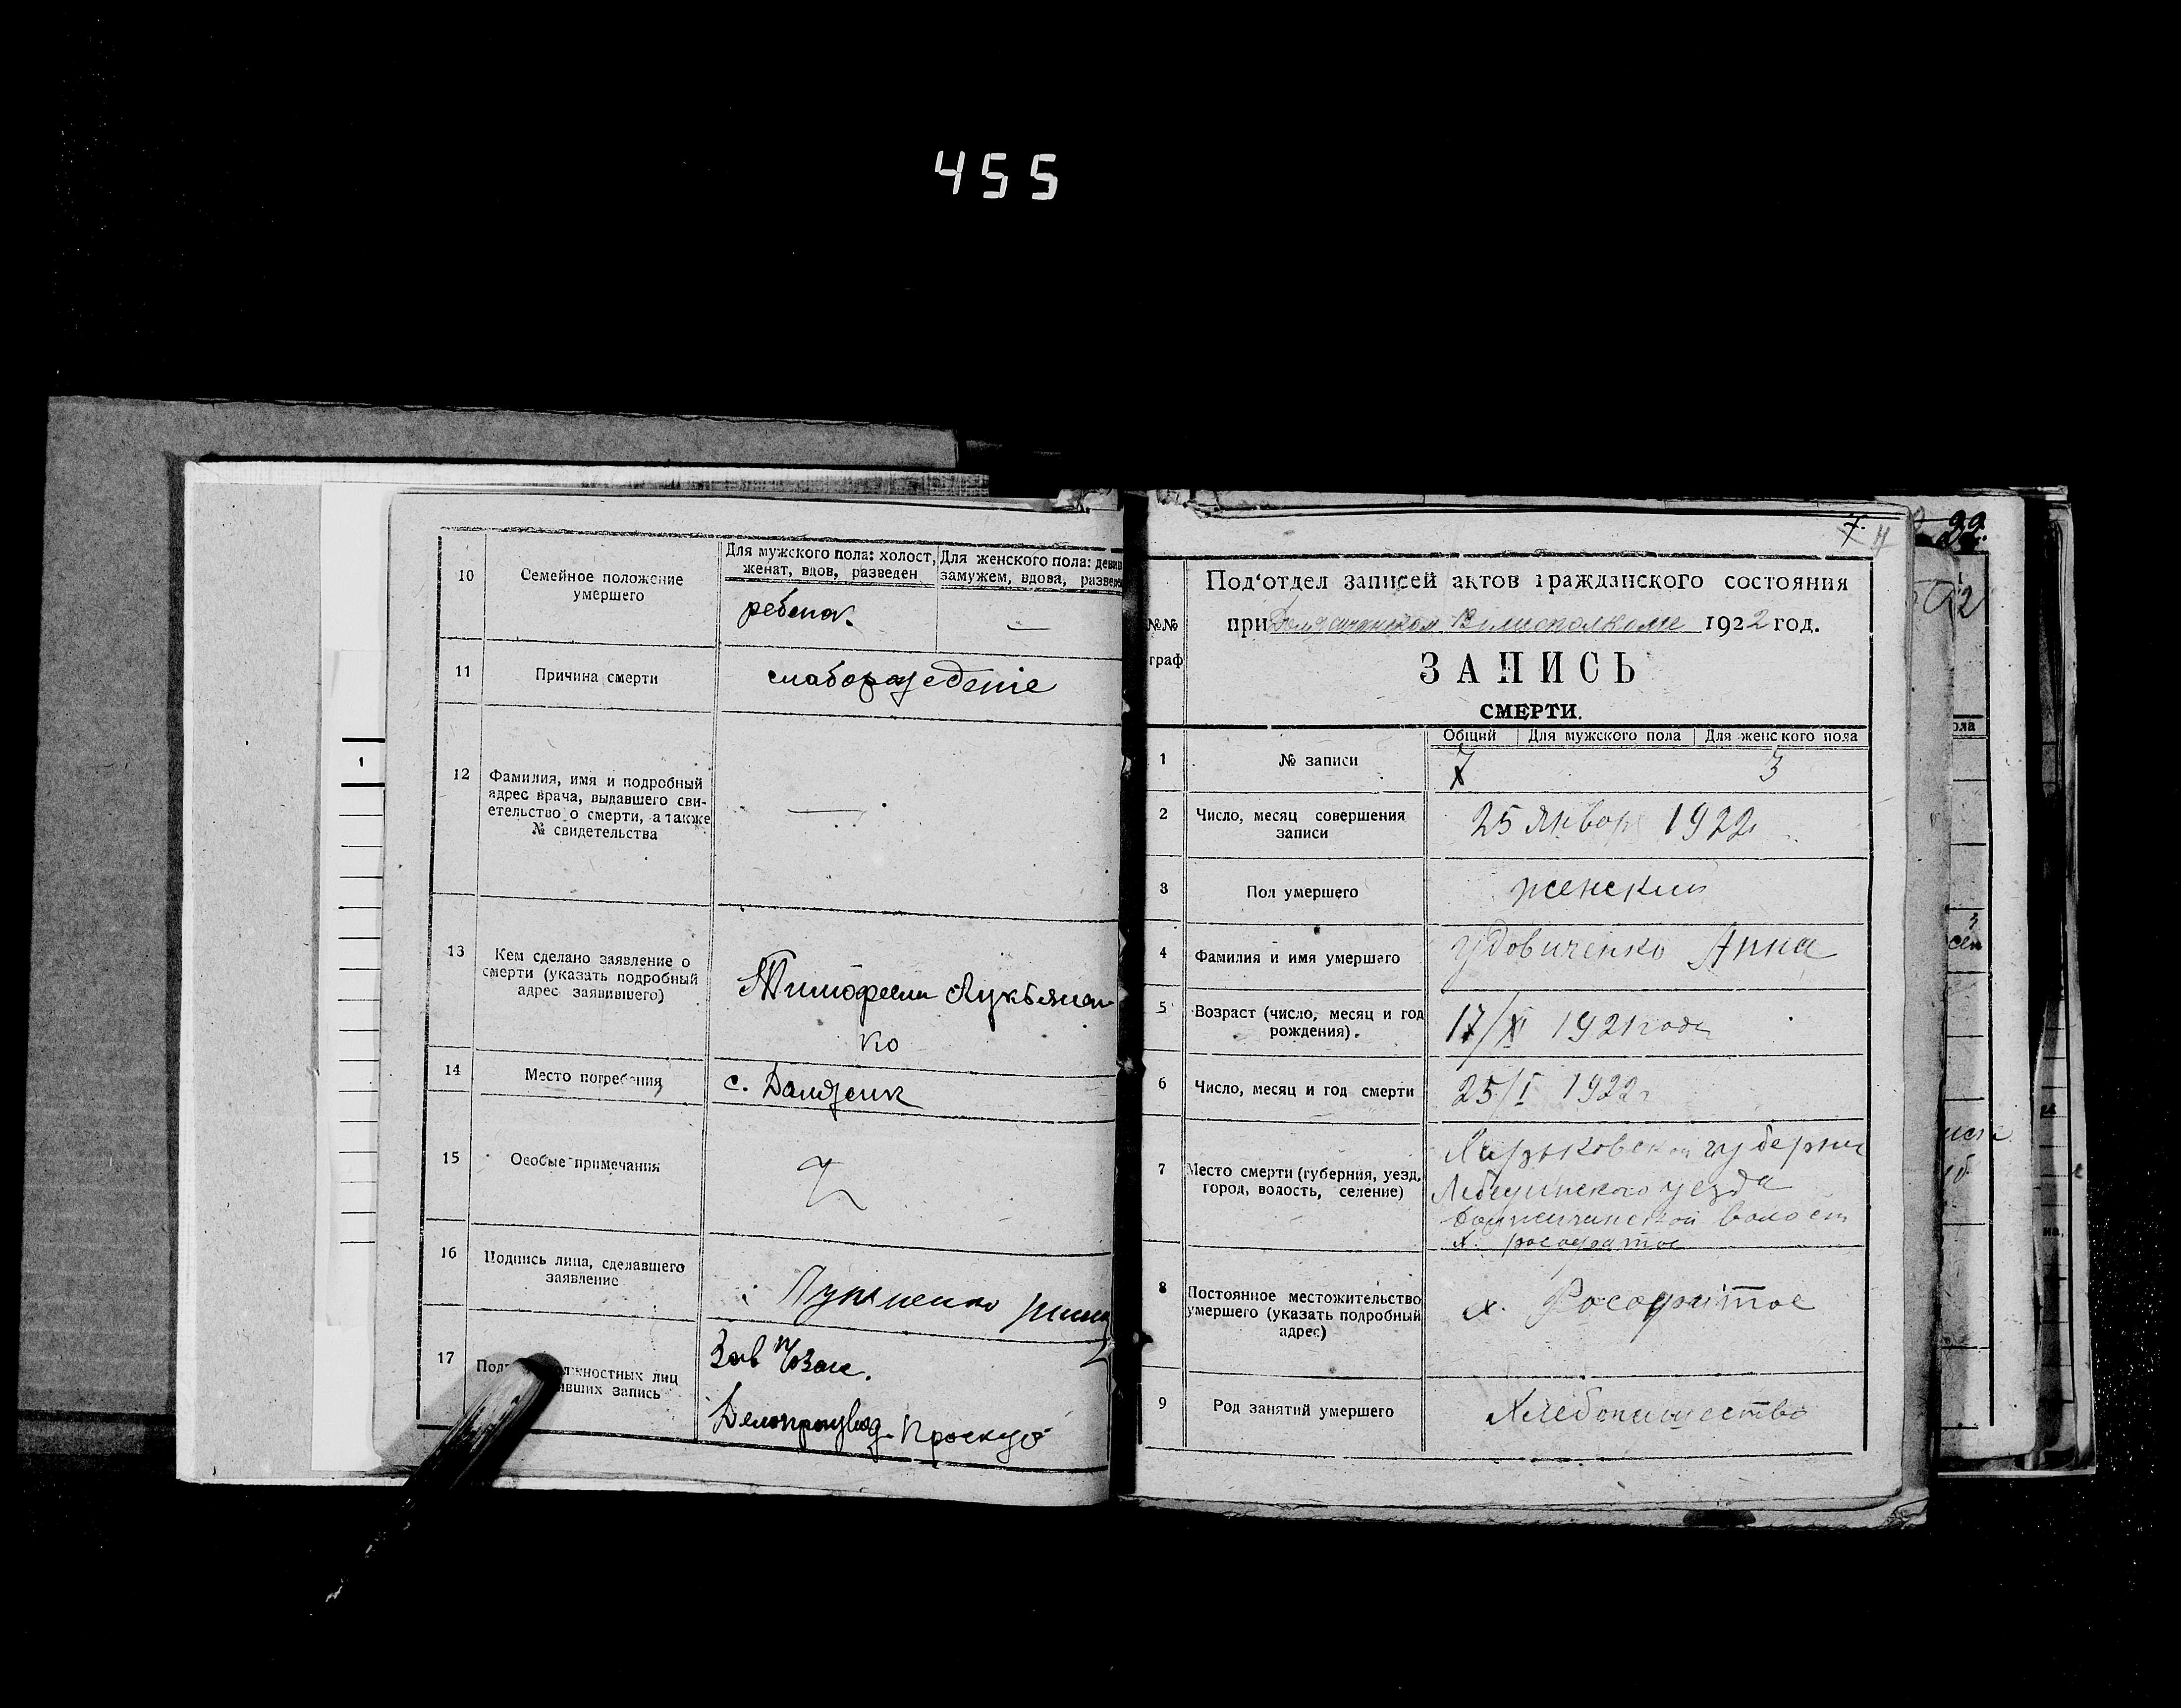 455
10
Семейное положение
умершего
Для мужского пола: холост,
женат, вдов, разведен
Для женского пола: девиц
замужем, вдова, разведе
ребенок.
—
11
Причина смерти
слаборождение
12
Фамилия, имя и подробный
адрес врача, выдавшего сви-
етельство о смерти, а также
№ свидетельства
—
13
Кем сделано заявление о
смерти (указать подробный
адрес заявившего)
Тимофеем Лукьянен
ко
14
Место погребения
с. Должик
15
Особые примечания
16
Подпись лица, сделавшего
заявление
Лукяненко
17
Под
жностных лиц
ивших запись
Зав п/оЗаг.
Делопроизвод. Проскур
7.
№№
граф
Под'отдел записей актов гражданского состояния
при Волисполкоме 1922 год.
ЗАПИСЬ
СМЕРТИ.
Общий
Для мужского пола
Для женского пола
1
№ записи
7
3
2
Число, месяц совершения
записи
25 Январ 1922
3
Пол умершего
женский
4
Фамилия и имя умершего
Удовиченко Анна
5
Возраст (число, месяц и год
рождения).
17/XI 1921 года
6
Число, месяц и год смерти
25/I 1922 г
7
Место смерти (губерния, уезд,
город, волость, селение)
Харьковской губерни
Лебединского уезда
волост
х.
8
Постоянное местожительство
умершего (указать подробный
адрес)
х.
9
Род занятий умершего
Хлебопашество
22
ола
1